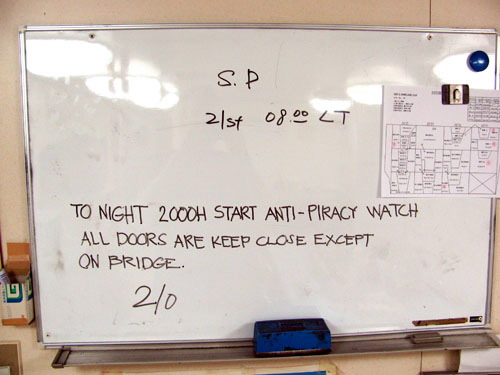 S.P
21st 08.00 LT
TO NIGHT 2000H START ANTI-PIRACY WATCH
ALL DOORS ARE KEEP CLOSE EXCEPT
ON BRIDGE.
2/0